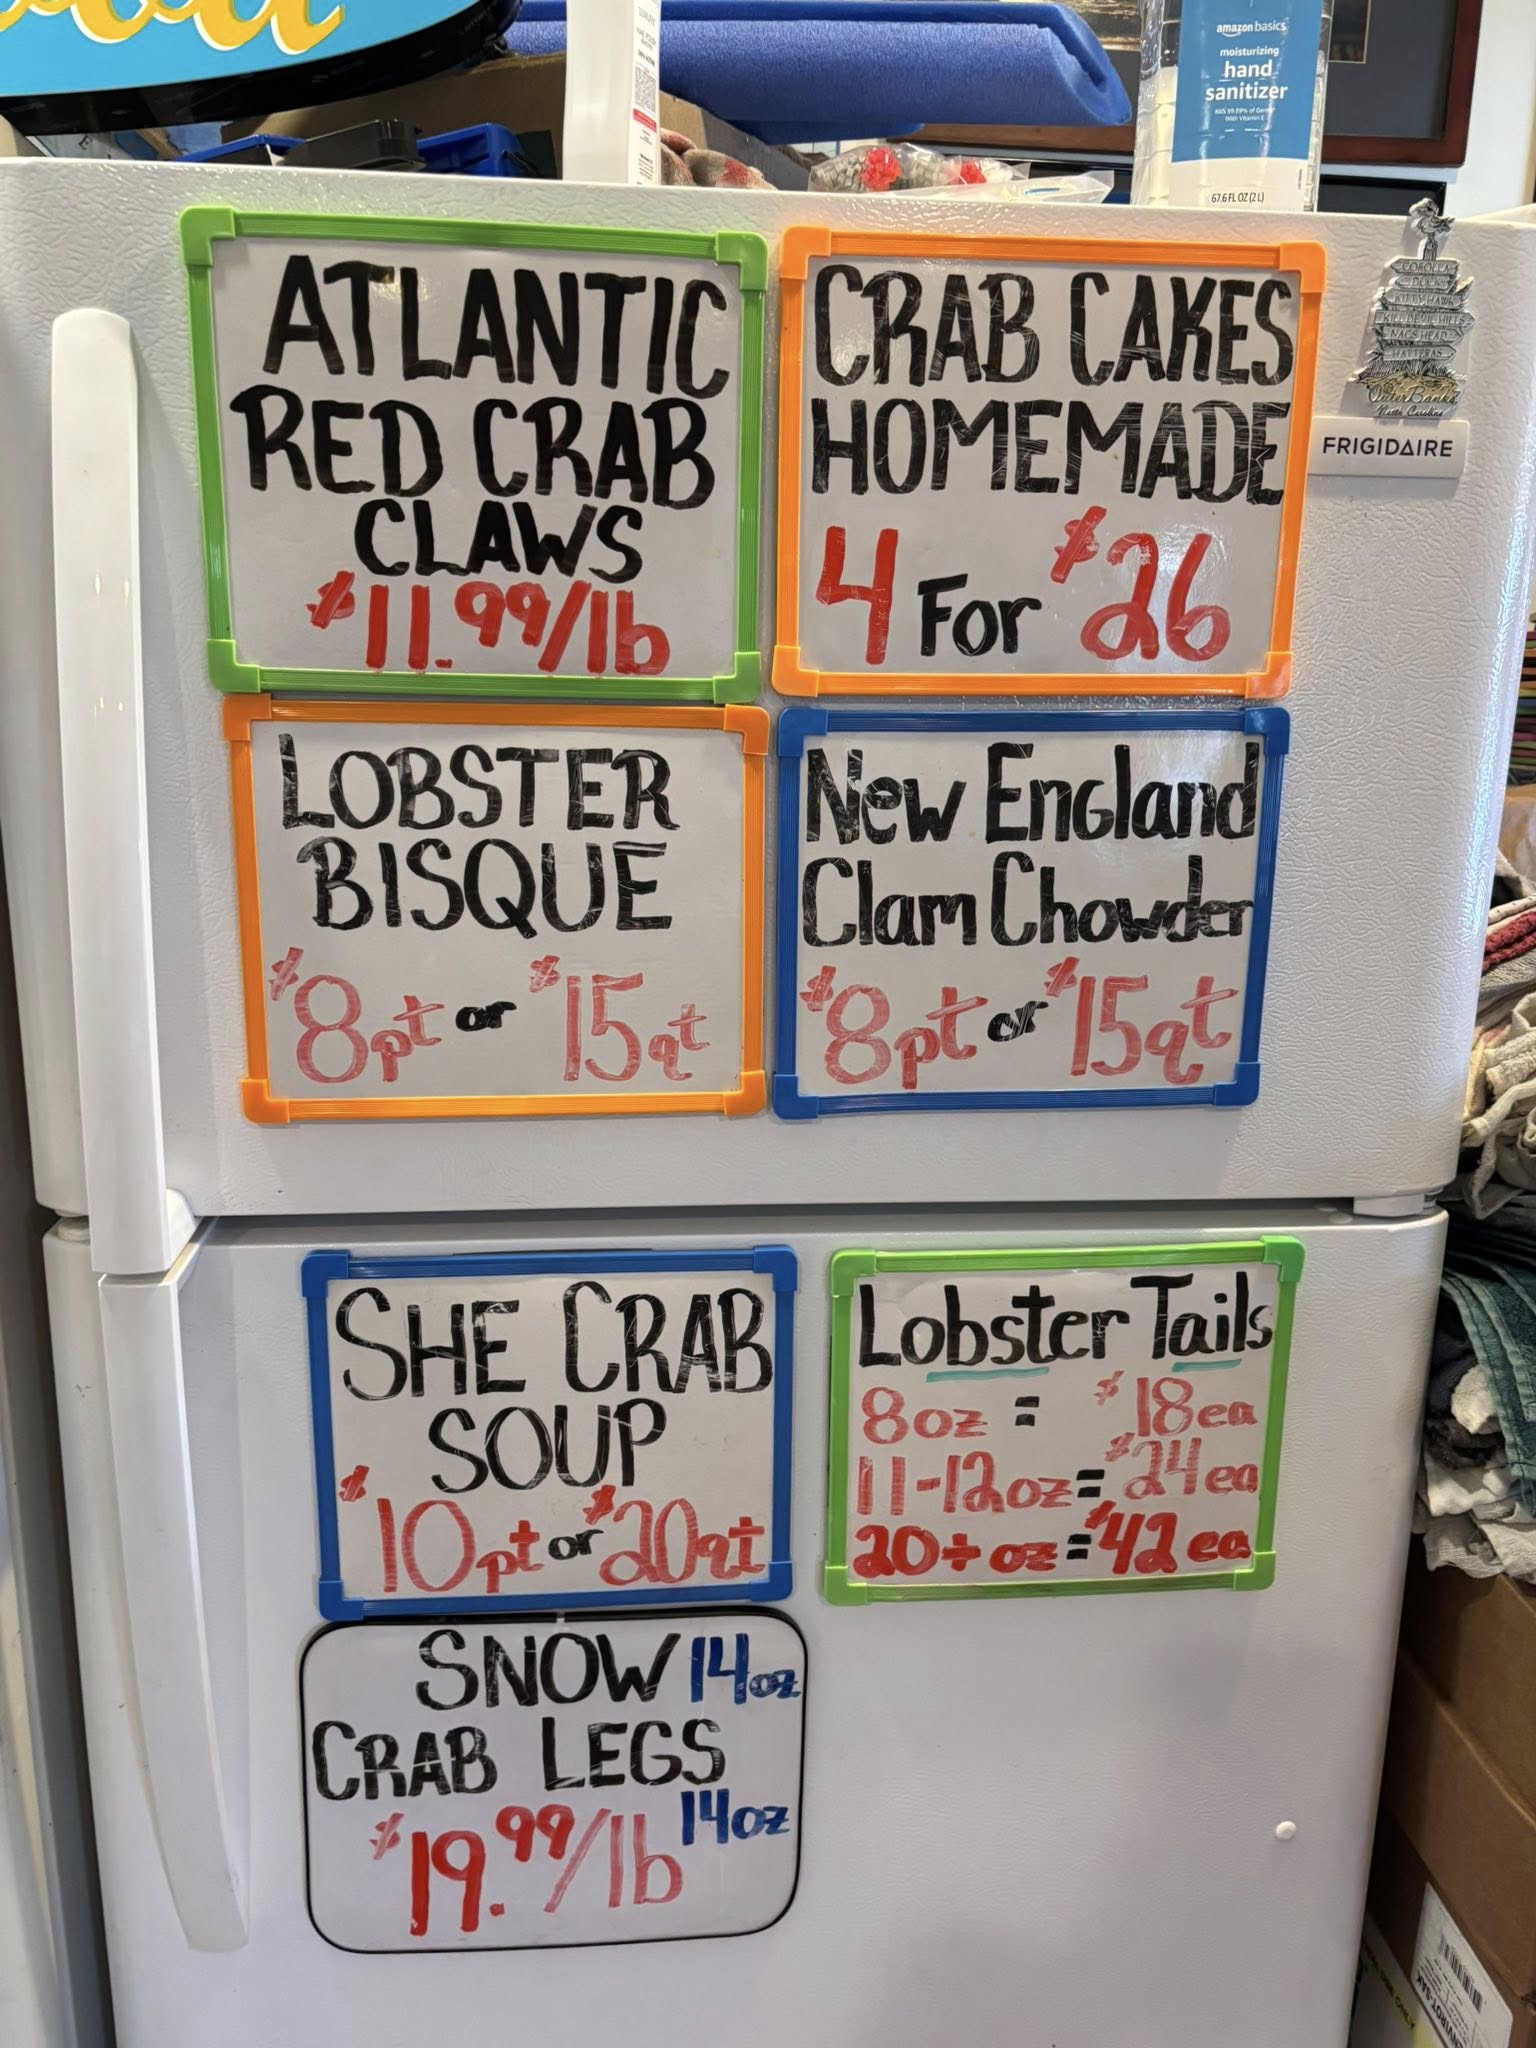 amazon basics
moisturizing
hand
sanitizer
67.6 FL OZ (2 L)
ATLANTIC
RED CRAB
CLAWS
$11.99/lb
CRAB CAKES
HOMEMADE
4 For $26
COROLLA
DUCK
KITTY HAWK
KILL DEVIL HILLS
NAGS HEAD
HATTERAS
Outer Banks
North Carolina
FRIGIDAIRE
LOBSTER
BISQUE
$8pt or $15qt
New England
Clam Chowder
$8pt or $15qt
SHE CRAB
SOUP
$10pt or $20qt
Lobster Tails
8oz = $18ea
11-12oz = $24ea
20÷ oz = $42 ea
SNOW 14oz
CRAB LEGS
$19.99/lb 14oz